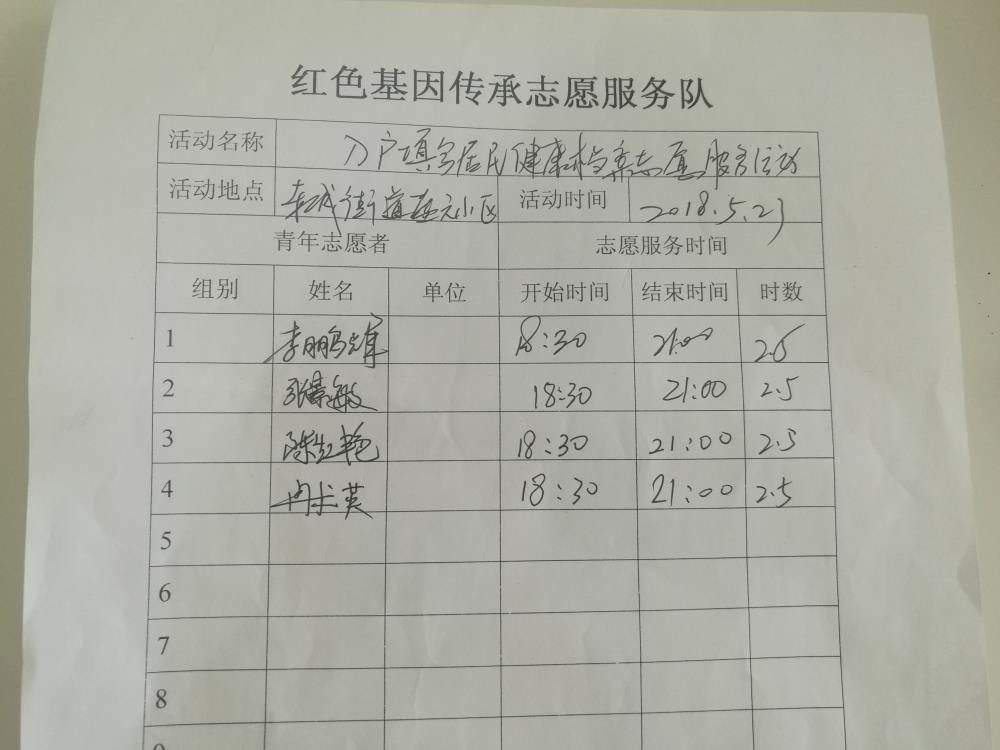 红色基因传承志愿服务队
活动名称 入户填写居民健康档案志愿服务活动
活动地点 街道 小区 活动时间 2018.5.23
青年志愿者 志愿服务时间
组别 姓名 单位 开始时间 结束时间 时数
1 李鹏 18:30 21:00 2.5
2 张景敏 18:30 21:00 2.5
3 陈红艳 18:30 21:00 2.5
4 英 18:30 21:00 2.5
5
6
7
8